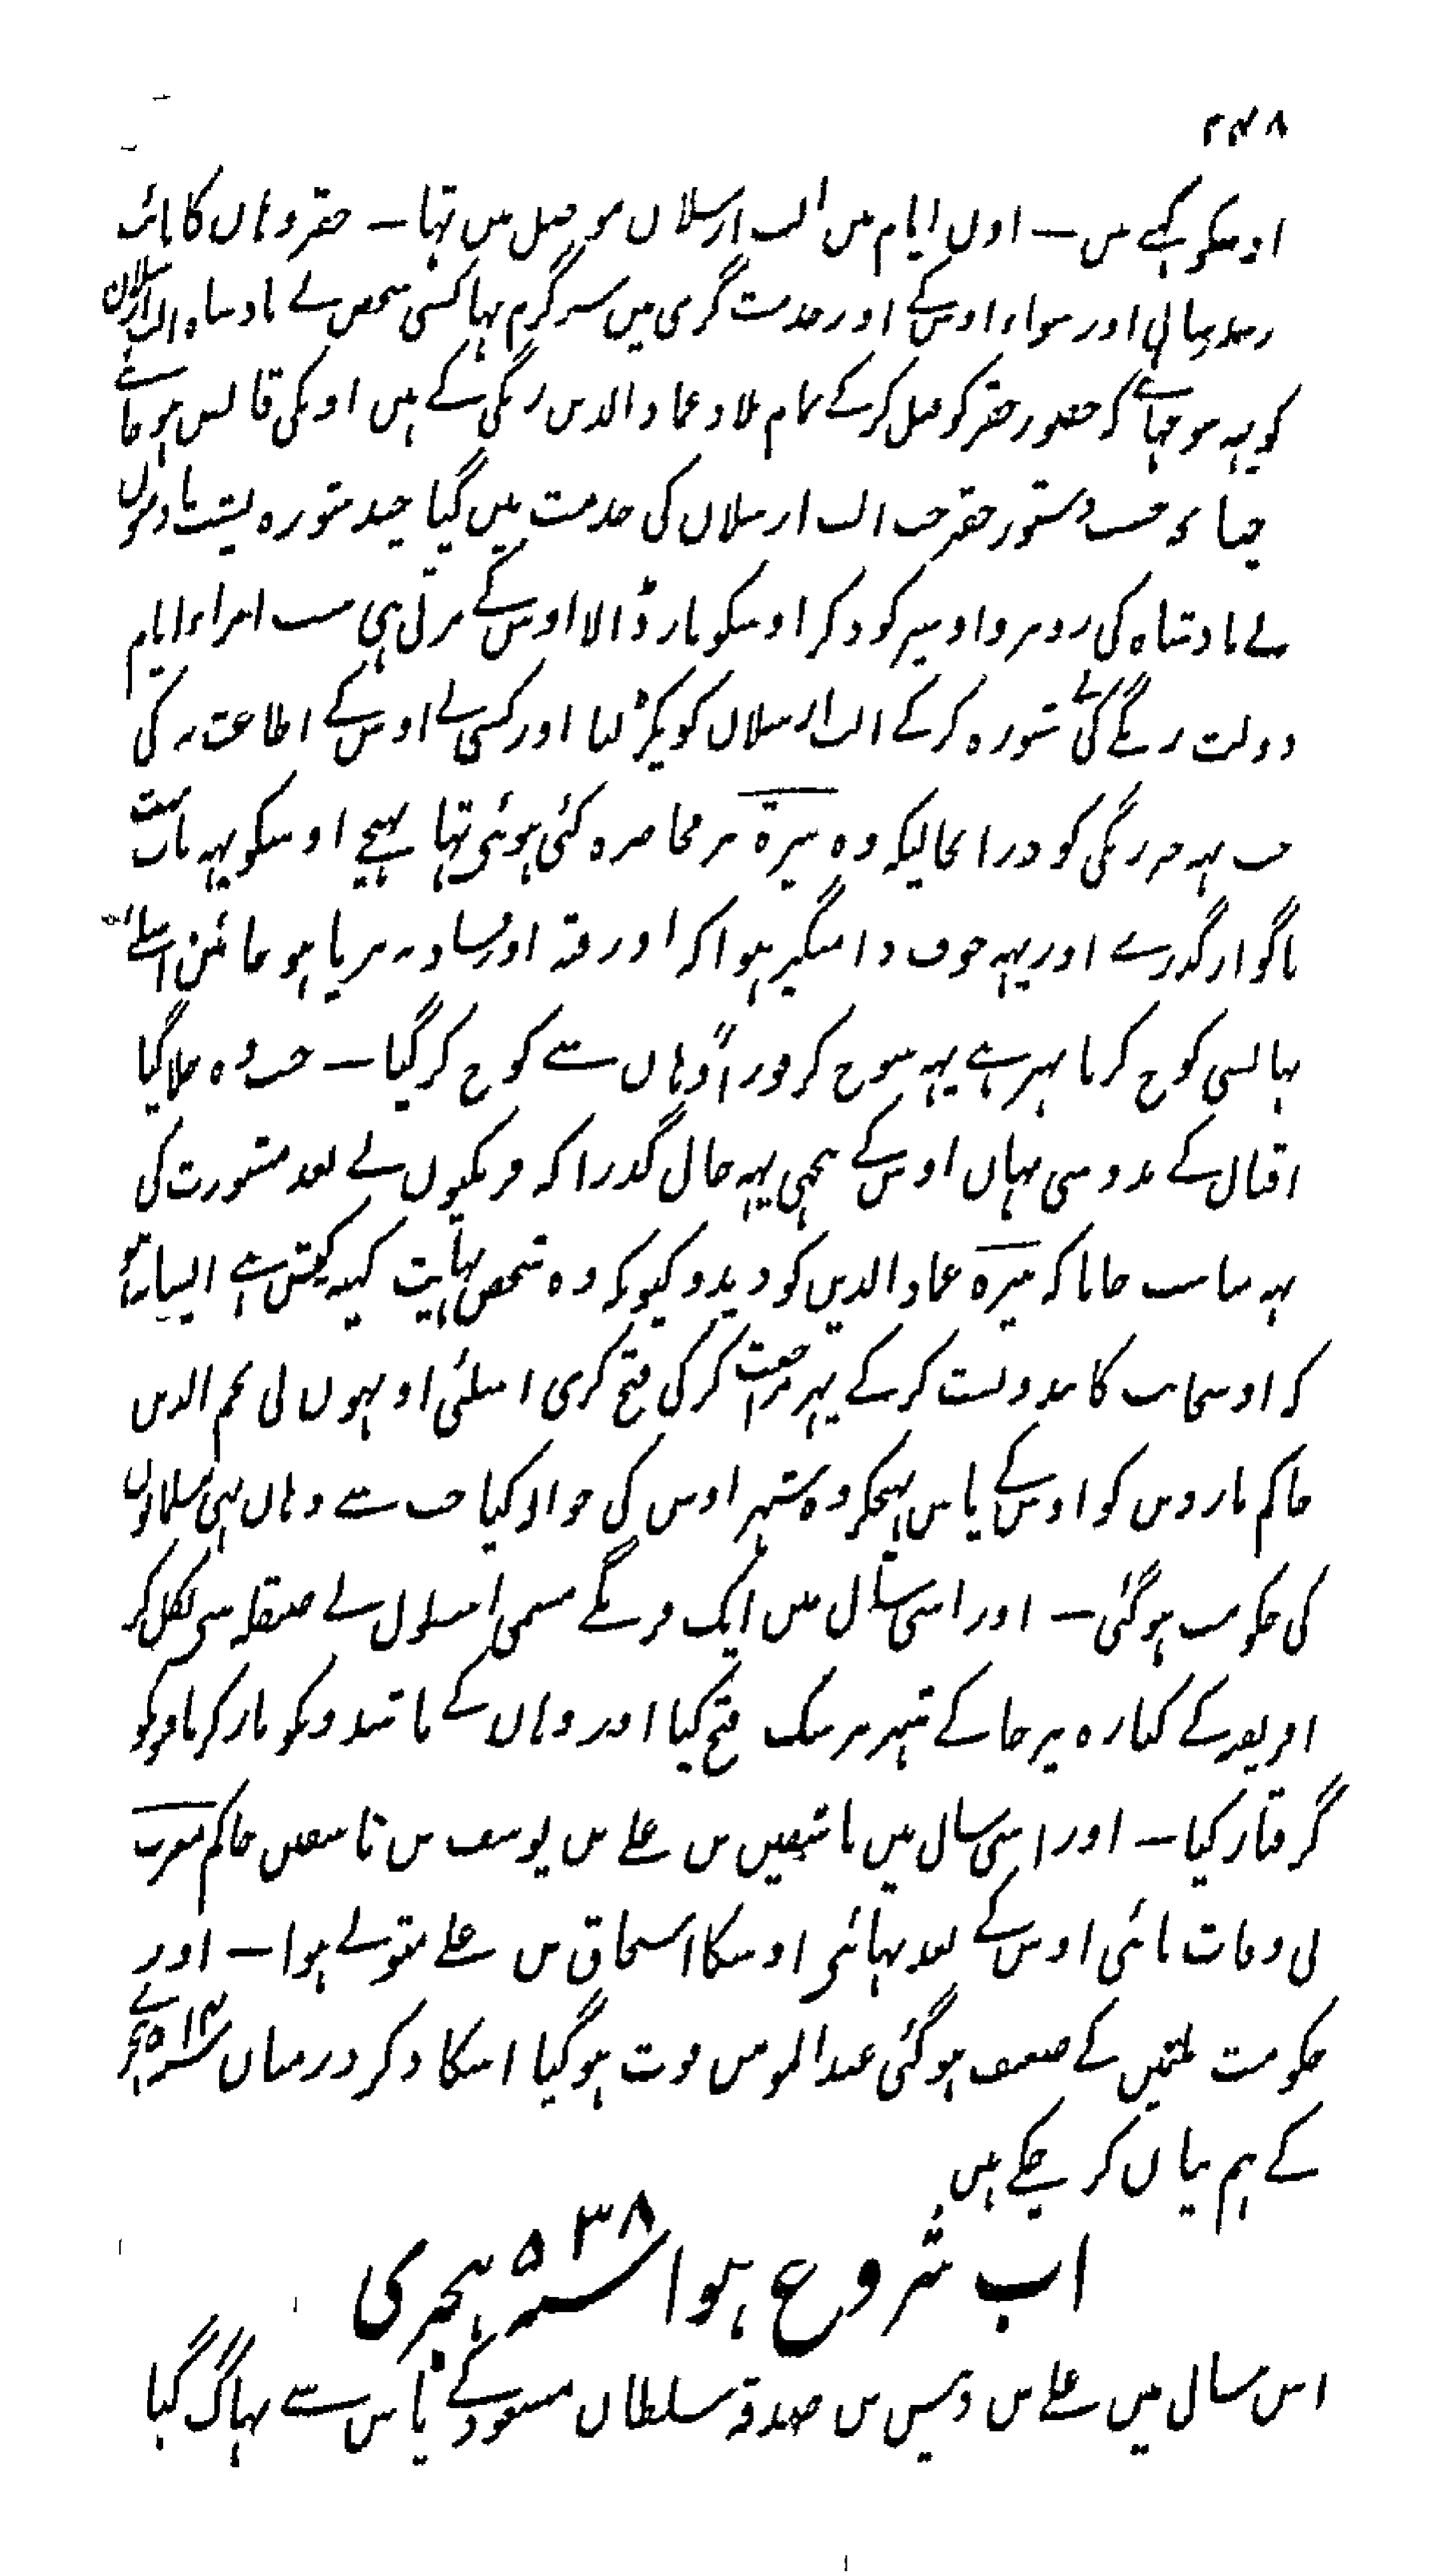 ۲۴۸
اوسکو کہتے ہیں — اون ایام میں الب ارسلان موصل میں تہا — جقر وہاں کا نائب
رسد رسانی اور سواء اوس کے اور خدمت گری میں سرگرم تہا کسی شخص نے بادشاہ الب ارسلان
کو یہہ سوجہائے کہ حضور جقر کو قتل کر کے تمام بلاد عماد الدین زنگی کے ہیں اونکی قابض ہو جائے
چنانچہ حسب دستور جقر جب الب ارسلان کی خدمت میں گیا چند شورہ پشت بادشاہوں
نے بادشاہ کی روبرو اوسپر کود کر اوسکو مار ڈالا اوس کے مرتے ہی سب امراء ایام
دولت زنگے کی نے شورہ کر کے الب ارسلان کو پکڑ لیا اور کسی نے اوس کے اطاعت نہ کی
جب یہہ خبر زنگی کو درانحالیکہ وہ بیرۃ پر محاصرہ کئی ہوئی تہا پہنچے اوسکو یہہ بات بہت
ناگوار گذرے اور یہہ خوف دامنگیر ہوا کہ اور فتنہ اور فساد نہ برپا ہو جائیں اسلئے
یہانسی کوچ کرنا بہتر ہے یہہ سوچ کر فوراً وہاں سے کوچ کر گیا — جب وہ چلا گیا
اقبال کے مدد سی یہاں اوس کے پیچہی یہہ حال گذرا کہ فرنگیوں نے بعد مشورت کی
یہہ مناسب جانا کہ بیرہ عماد الدین کو دیدو کیونکہ وہ شخص نہایت کینہ کیش ہے ایسا نہو
کہ اوسجانب کا بندوبست کر کے پہر مراجعت کر کی فتح کری اسلئی اونہوں نی نجم الدین
حاکم ماردین کو اوس کے پاس بہیجکر وہ شہر اوس کی حوالہ کیا جب سے وہاں بہی مسلمانوں
کی حکومت ہوگئی — اور اسی سال میں ایک فرنگے مسمی اسطول نے صقلہ سی نکل کر
افریقہ کے کنارہ پر جا کے شہر برسک فتح کیا اور وہاں کے باشندونکو مار کر باقیونکو
گرفتار کیا — اور اسی سال میں تاشفین بن علے بن یوسف بن تاشفین حاکم مغرب
نی وفات پائی اوس کے بعد بہائی اوسکا اسحاق بن علے متولے ہوا — اور
حکومت ملثمین کے ضعیف ہوگئی عبد المومن فوت ہو گیا اسکا ذکر درمیان سنہ ۵۱۴ ہجری
کے ہم بیان کر چکے ہیں
اب شروع ہوا سنہ ۵۳۸ ہجری
اس سال میں علے بن دبیس بن صدقہ سلطان مسعود کے پاس سے بہاگ گیا